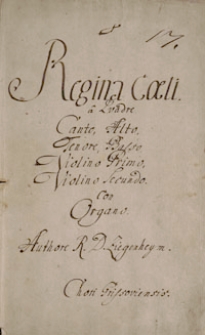 17.
Regina Cœli.
à Quadre
Canto, Alto,
Tenore, Basso
Violino Primo,
Violino Secundo.
Con
Organo.
Authore R. D. Liegenheym.
Chori